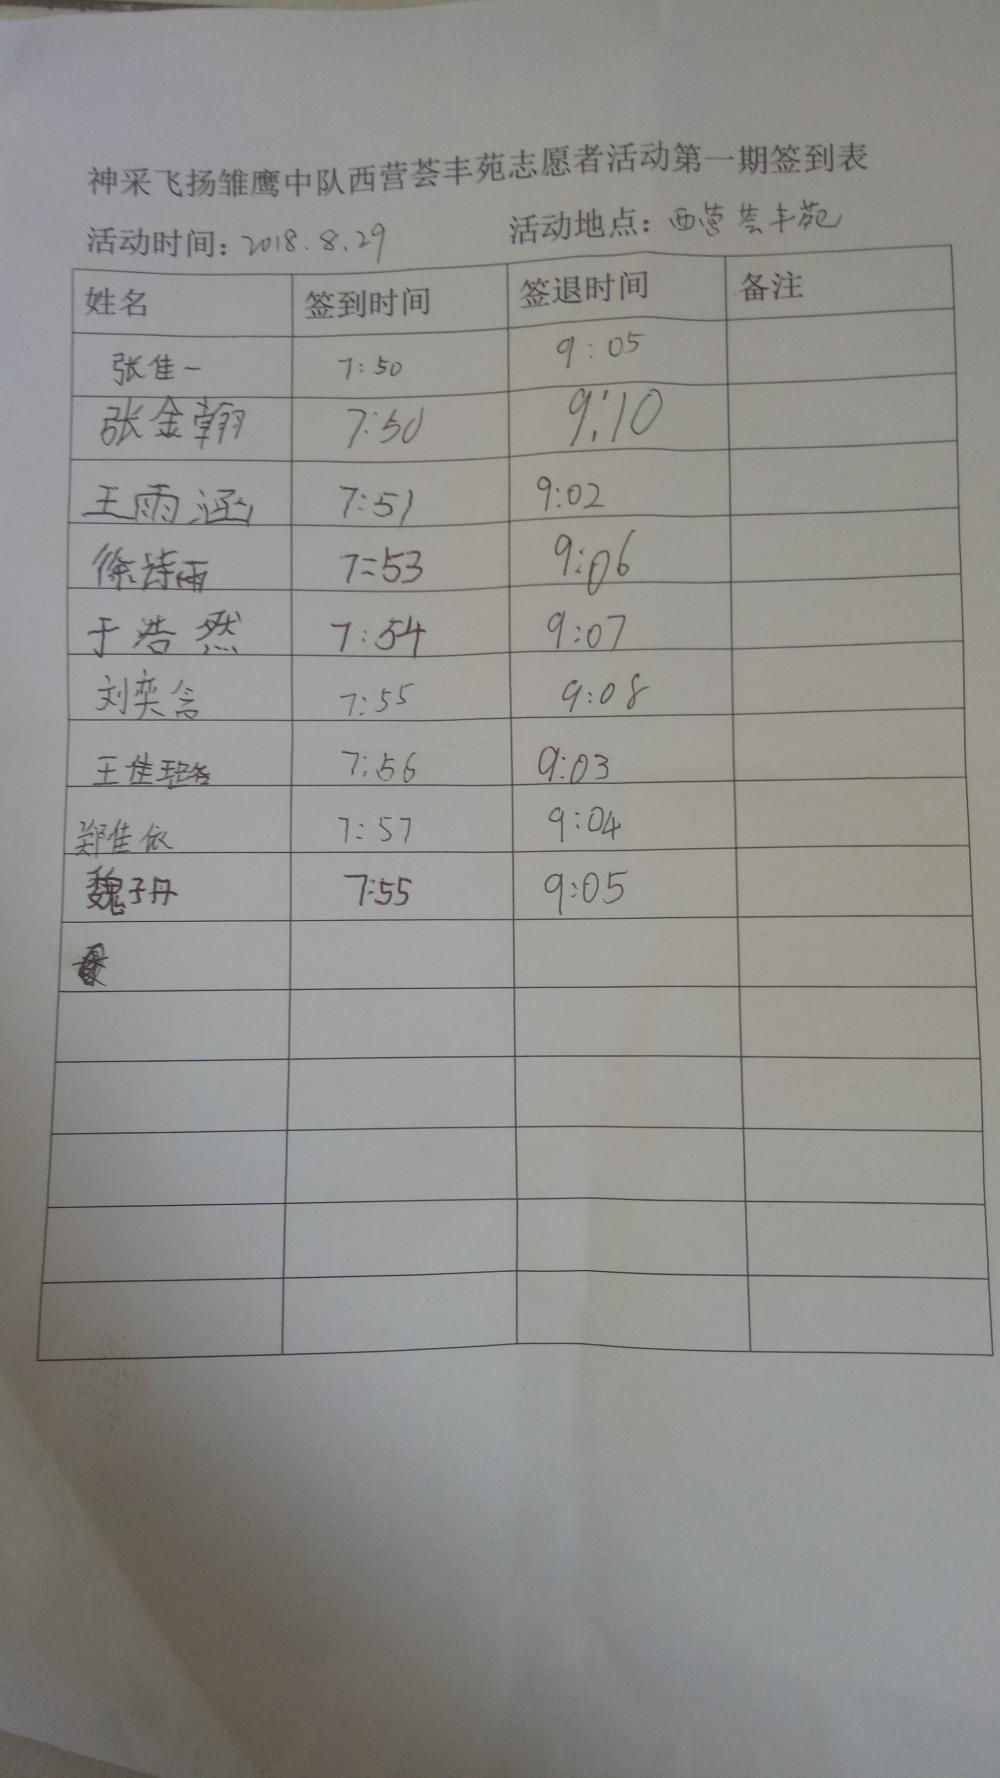 神采飞扬雏鹰中队西营荟丰苑志愿者活动第一期签到表
活动时间: 2018.8.29 活动地点: 西营荟丰苑
姓名 签到时间 签退时间 备注
张佳一 7:50 9:05
张金翰 7:50 9:10
王雨涵 7:51 9:02
徐诗雨 7:53 9:06
于浩然 7:54 9:07
刘奕含 7:55 9:08
王佳 7:56 9:03
郑佳依 7:57 9:04
魏子丹 7:55 9:05